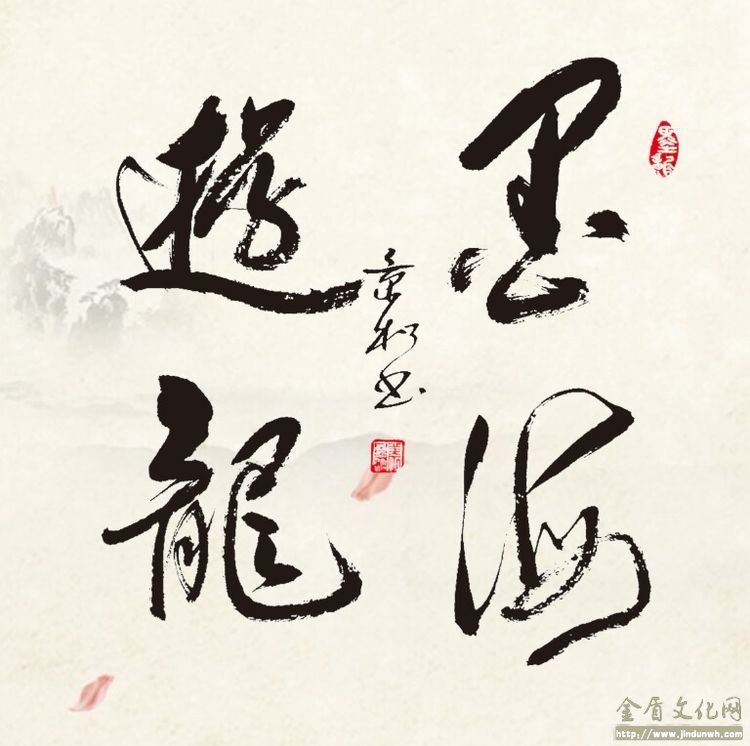 墨海
遊龍
景松书
金盾文化网
http://www.jindunwh.com